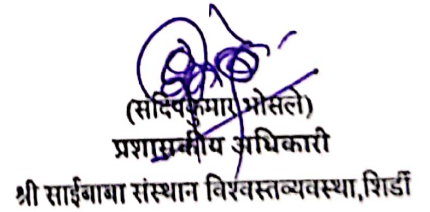 (संदिपकुमार भोसले)
प्रशासकीय अधिकारी
श्री साईबाबा संस्थान विश्वस्तव्यवस्था,शिर्डी